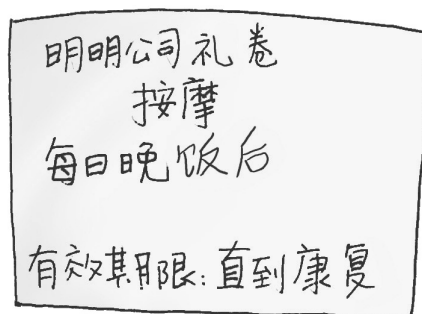 明明公司礼卷
按摩
每日晚饭后
有效期限:直到康复